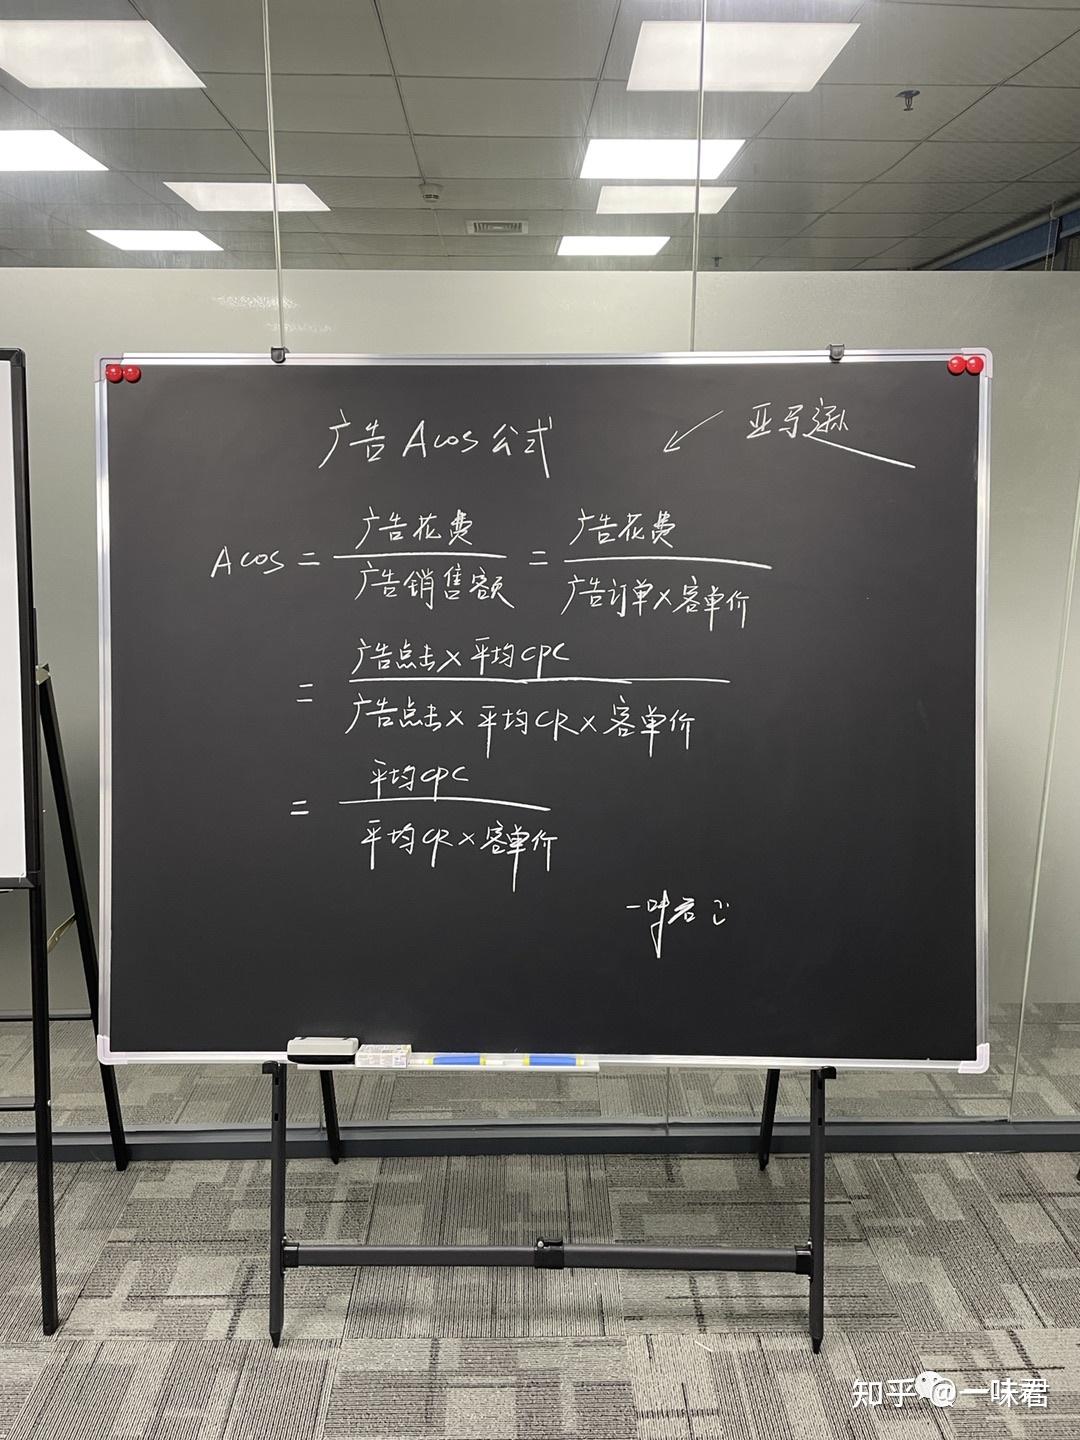 广告Acos公式
亚马逊
Acos = 广告花费 / 广告销售额 = 广告花费 / 广告订单×客单价
= 广告点击×平均CPC / 广告点击×平均CR×客单价
= 平均CPC / 平均CR×客单价
一味君
知乎 @一味君